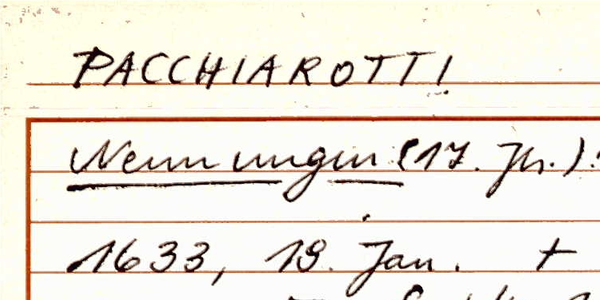 PACCHIAROTTI
Nennungen (17. Jh.):
1633, 19. Jan. +